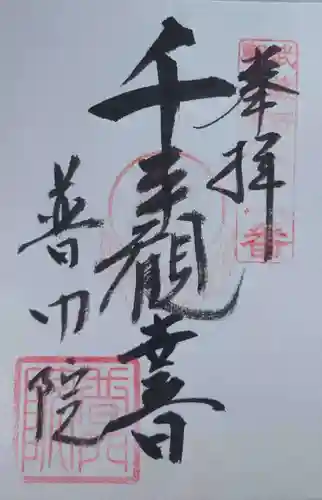 奉拝
千手観音
普門院